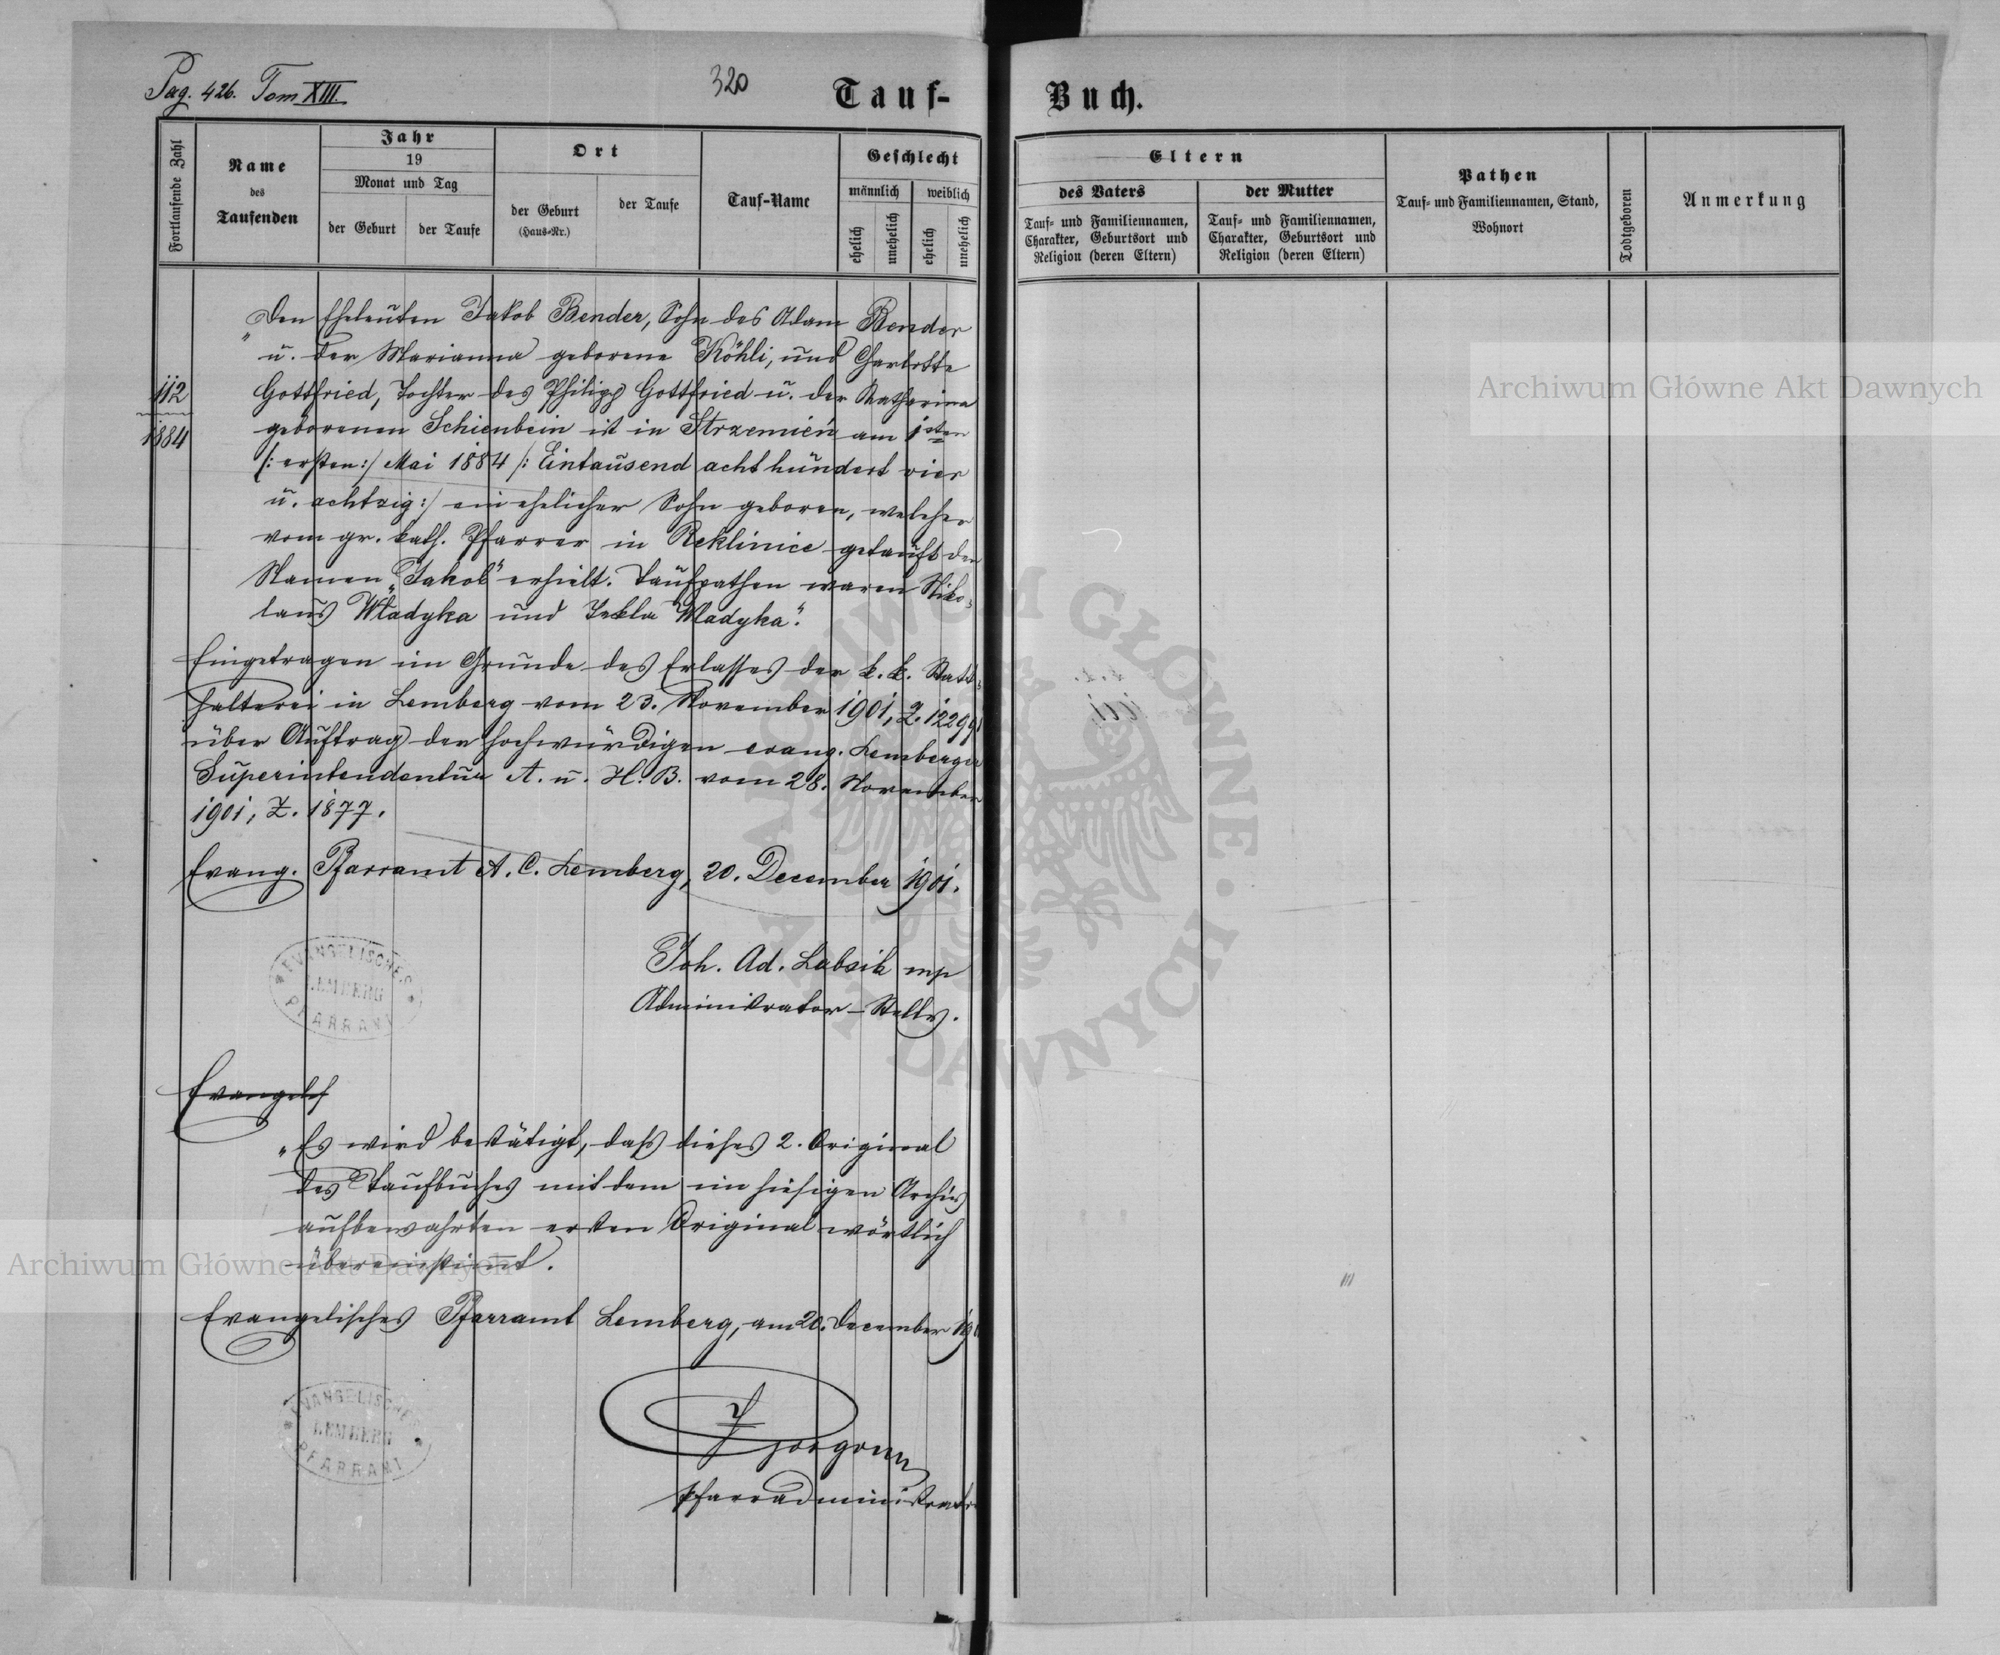 Pag. 426. Tom XIII.
320
Tauf-
Buch.
Fortlaufende Zahl
Name
des
Taufenden
Jahr
19
Monat und Tag
der Geburt
der Taufe
Ort
der Geburt
(Haus-Nr.)
der Taufe
Tauf-Name
Geschlecht
männlich
weiblich
ehelich
unehelich
ehelich
unehelich
Eltern
des Vaters
Tauf- und Familiennamen,
Charakter, Geburtsort und
Religion (deren Eltern)
der Mutter
Tauf- und Familiennamen,
Charakter, Geburtsort und
Religion (deren Eltern)
Pathen
Tauf- und Familiennamen, Stand,
Wohnort
Todtgeboren
Anmerkung
112
1884
„Den Eheleuten Jakob Bender, Sohn des Adam Bender
u. der Marianna geborene Köhli, und Charlotte
Gottfried, Tochter des Philipp Gottfried u. der Katharina
geborenen Schienbein ist in Strzemień am 1sten
/: ersten :/ Mai 1884 /: Eintausend acht hundert vier
u. achtzig :/ ein ehelicher Sohn geboren, welcher
vom gr. kath. Pfarrer in Reklinice getauft den
Namen „Jakob" erhielt. Taufpathen waren Niko-
laus Wladyka und Tekla Wladyka".
Eingetragen im Grunde des Erlasses der k. k. Statt-
halterei in Lemberg vom 23. November 1901, Z. 122991
über Auftrag der hochwürdigen evang. Lemberger
Superintendentur A. u. H. B. vom 28. November
1901, Z. 1877.
Evang. Pfarramt A. C. Lemberg, 20. December 1901.
EVANGELISCHES
LEMBERG
PFARRAMT
Joh. Ad. Labsik mp
Administrator-Stellv.
Evangelis
„Es wird bestätigt, daß dieses 2. Original
des Taufbuches mit dem im hiesigen Archiv
aufbewahrten ersten Original wörtlich
übereinstimt.
Evangelisches Pfarramt Lemberg, am 20. December 190
EVANGELISCHES
LEMBERG
PFARRAMT
Pfarradministrator
Archiwum Główne Akt Dawnych
Archiwum Główne Akt Dawnych
ARCHIWUM GŁÓWNE · AKT DAWNYCH ·